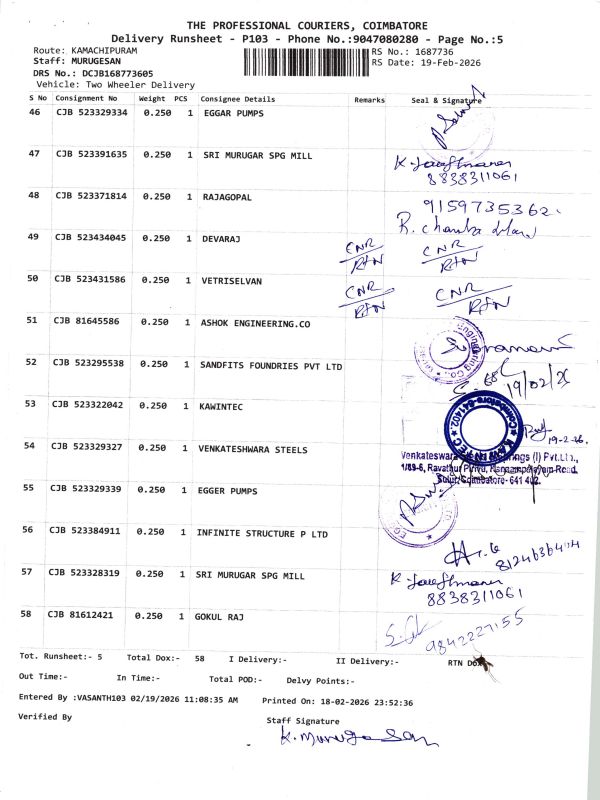 THE PROFESSIONAL COURIERS, COIMBATORE
Delivery Runsheet - P103 - Phone No.:9047080280 - Page No.:5
Route: KAMACHIPURAM RS No.: 1687736
Staff: MURUGESAN RS Date: 19-Feb-2026
DRS No.: DCJB168773605
Vehicle: Two Wheeler Delivery
S No Consignment No Weight PCS Consignee Details Remarks Seal & Signature
46 CJB 523329334 0.250 1 EGGAR PUMPS
47 CJB 523391635 0.250 1 SRI MURUGAR SPG MILL
8838311061
48 CJB 523371814 0.250 1 RAJAGOPAL 9159735362.
R.
49 CJB 523434045 0.250 1 DEVARAJ CNR CNR
RTN RTN
50 CJB 523431586 0.250 1 VETRISELVAN CNR CNR
RTN RTN
51 CJB 81645586 0.250 1 ASHOK ENGINEERING.CO
Engineering Co.,
52 CJB 523295538 0.250 1 SANDFITS FOUNDRIES PVT LTD
19/02/26
53 CJB 523322042 0.250 1 KAWINTEC
KAWINTEC Coimbatore-641402. 19-2-26.
54 CJB 523329327 0.250 1 VENKATESHWARA STEELS
Venkateswara Steels & Springs (I) Pvt.Ltd.,
1/89-6, Ravathur Pirivu, Kannampalayam Road,
Sulur, Coimbatore- 641 402.
55 CJB 523329339 0.250 1 EGGER PUMPS
56 CJB 523384911 0.250 1 INFINITE STRUCTURE P LTD
8124636404
57 CJB 523328319 0.250 1 SRI MURUGAR SPG MILL
8838311061
58 CJB 81612421 0.250 1 GOKUL RAJ
9842227155
Tot. Runsheet:- 5 Total Dox:- 58 I Delivery:- II Delivery:- RTN Dox
Out Time:- In Time:- Total POD:- Delvy Points:-
Entered By :VASANTH103 02/19/2026 11:08:35 AM Printed On: 18-02-2026 23:52:36
Verified By Staff Signature
K. Murugesan